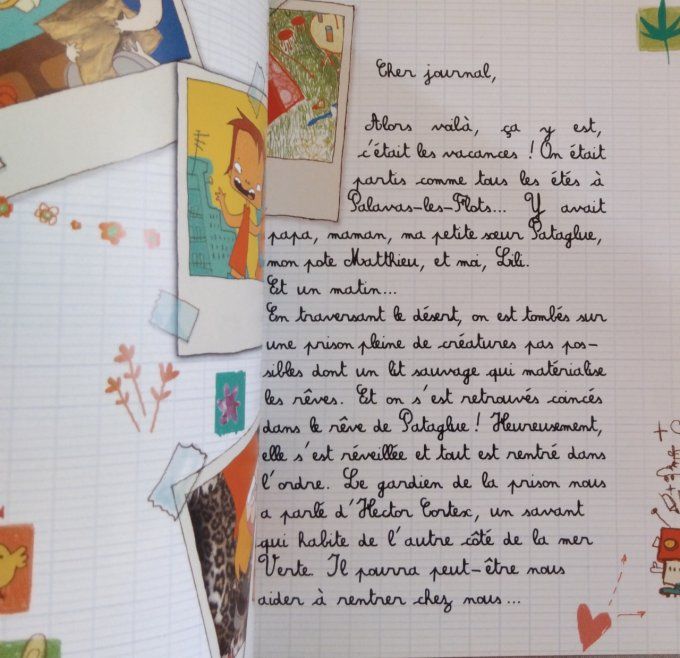 Cher journal,
Alors voilà, ça y est,
c'était les vacances ! On était
partis comme tous les étés à
Palavas-les-Flots... Y avait
papa, maman, ma petite sœur Pataglue,
mon pote Matthieu, et moi, Lili.
Et un matin...
En traversant le désert, on est tombés sur
une prison pleine de créatures pas pos-
sibles dont un lit sauvage qui matérialise
les rêves. Et on s'est retrouvés coincés
dans le rêve de Pataglue ! Heureusement,
elle s'est réveillée et tout est rentré dans
l'ordre. Le gardien de la prison nous
a parlé d'Hector Cortex, un savant
qui habite de l'autre côté de la mer
Verte. Il pourra peut-être nous
aider à rentrer chez nous...